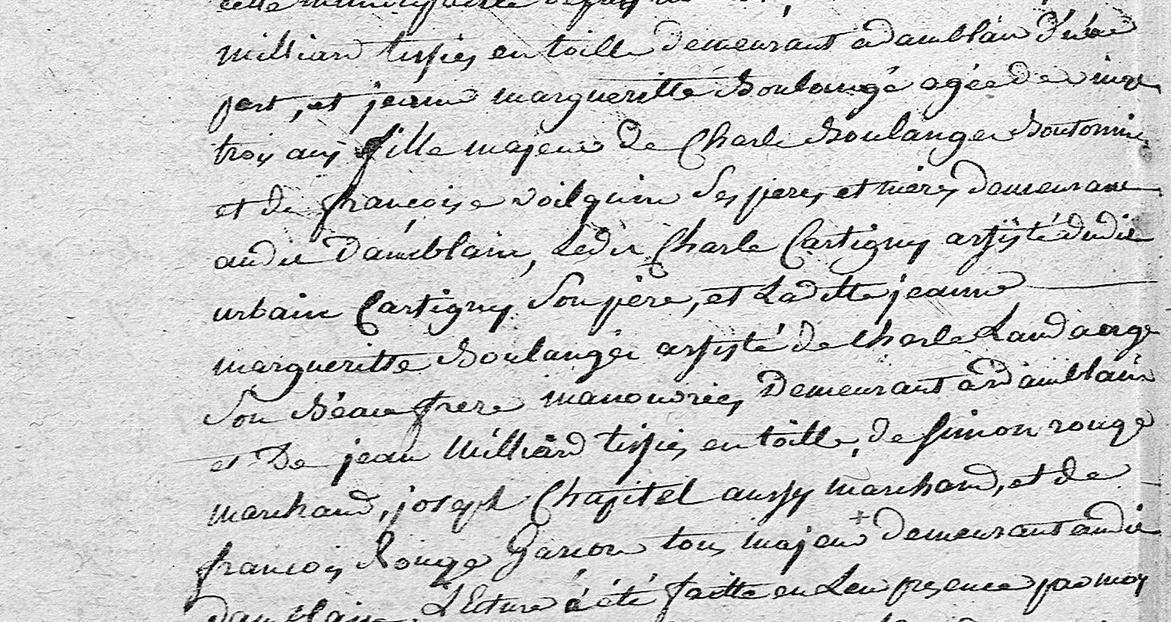 cette municipalité depuis
milliard tissier en toille demeurant a damblain d'une
part, et jeanne margueritte Boulangé agée de vingt
trois ans fille majeur de Charle Boulanger
et de françoise voilquin Ses peres et meres demeurant
audit Damblain, Ledit Charle Cartigny assisté dudit
urbain Cartigny Son père, et Laditte jeanne
margueritte Boulanger assisté de Charle
Son Béau frere manouvrier Demeurant a damblain
et De jean Milliard tissier en toille, de simon rouge
marchand, joseph Chapitel aussy marchand, et de
françois Rouge Garcon tous majeur + demeurant audit
damblain. Lecture a été faitte en Leur presence par moy